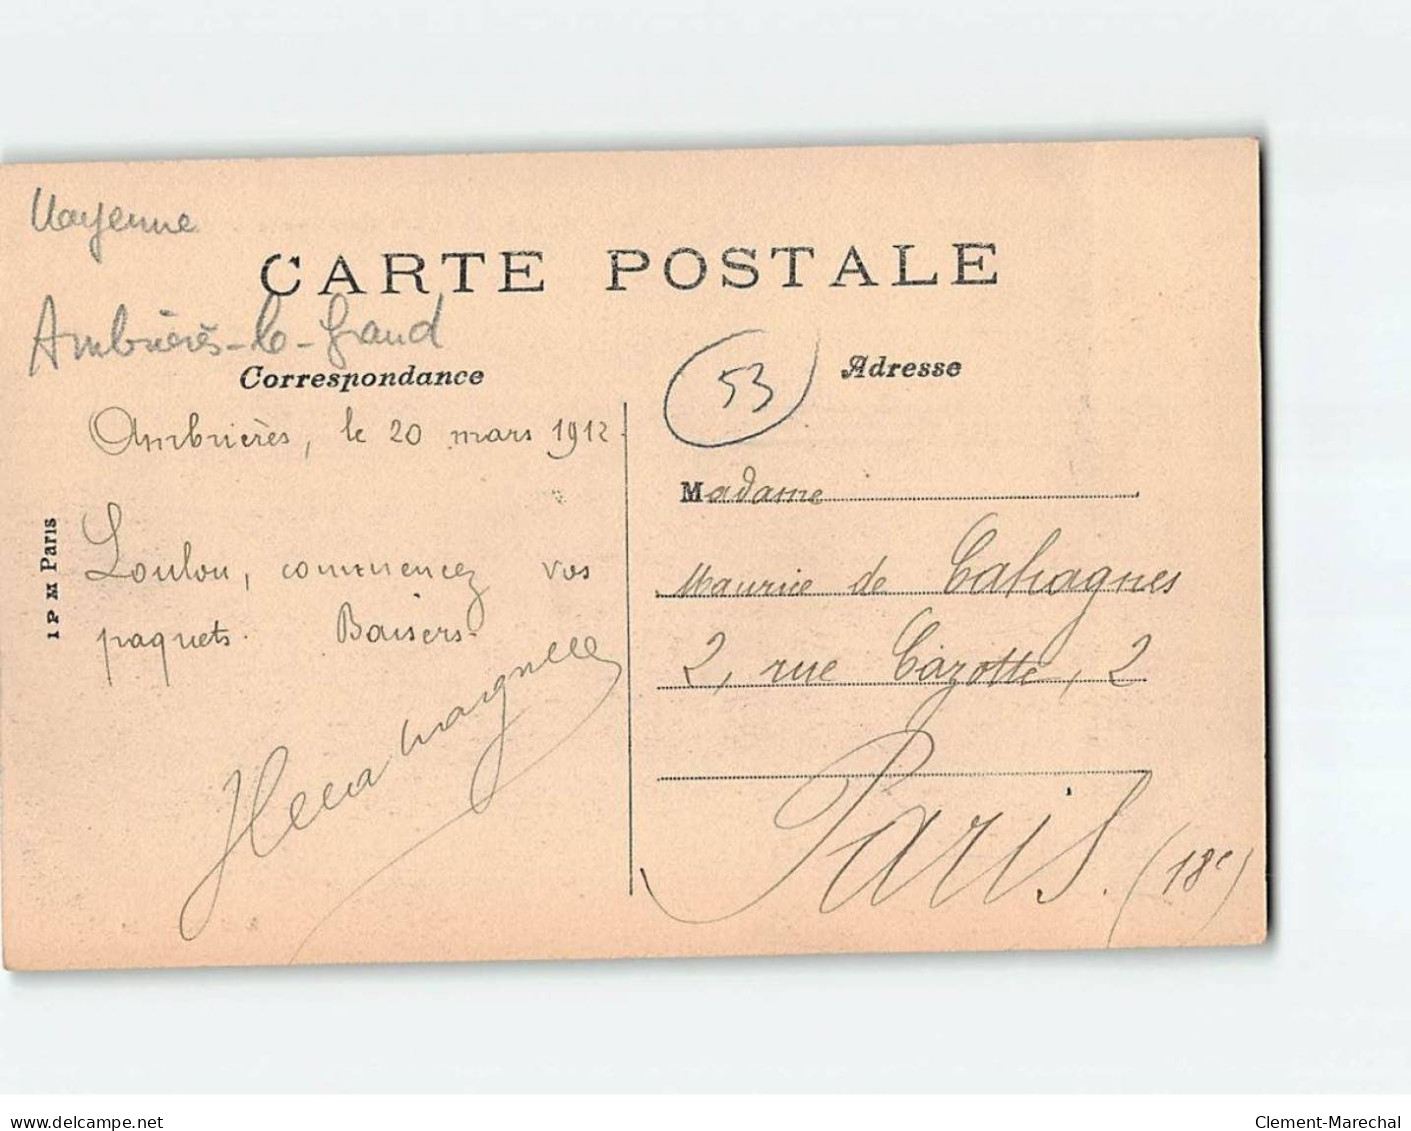 Mayenne
CARTE POSTALE
Ambrières-le-Grand
Correspondance
53
Adresse
Ambrières, le 20 mars 1912.
Madame
Loulou, commencez vos
paquets. Baisers.
Maurice de Cahagnes
2, rue Cazotte, 2
Paris. (18e)
I P M Paris
delcampe.net
Clement-Marechal